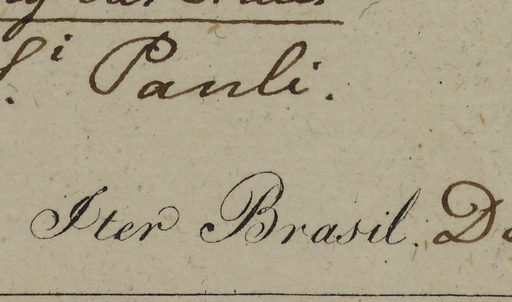 S.i Pauli.
Iter Brasil. De